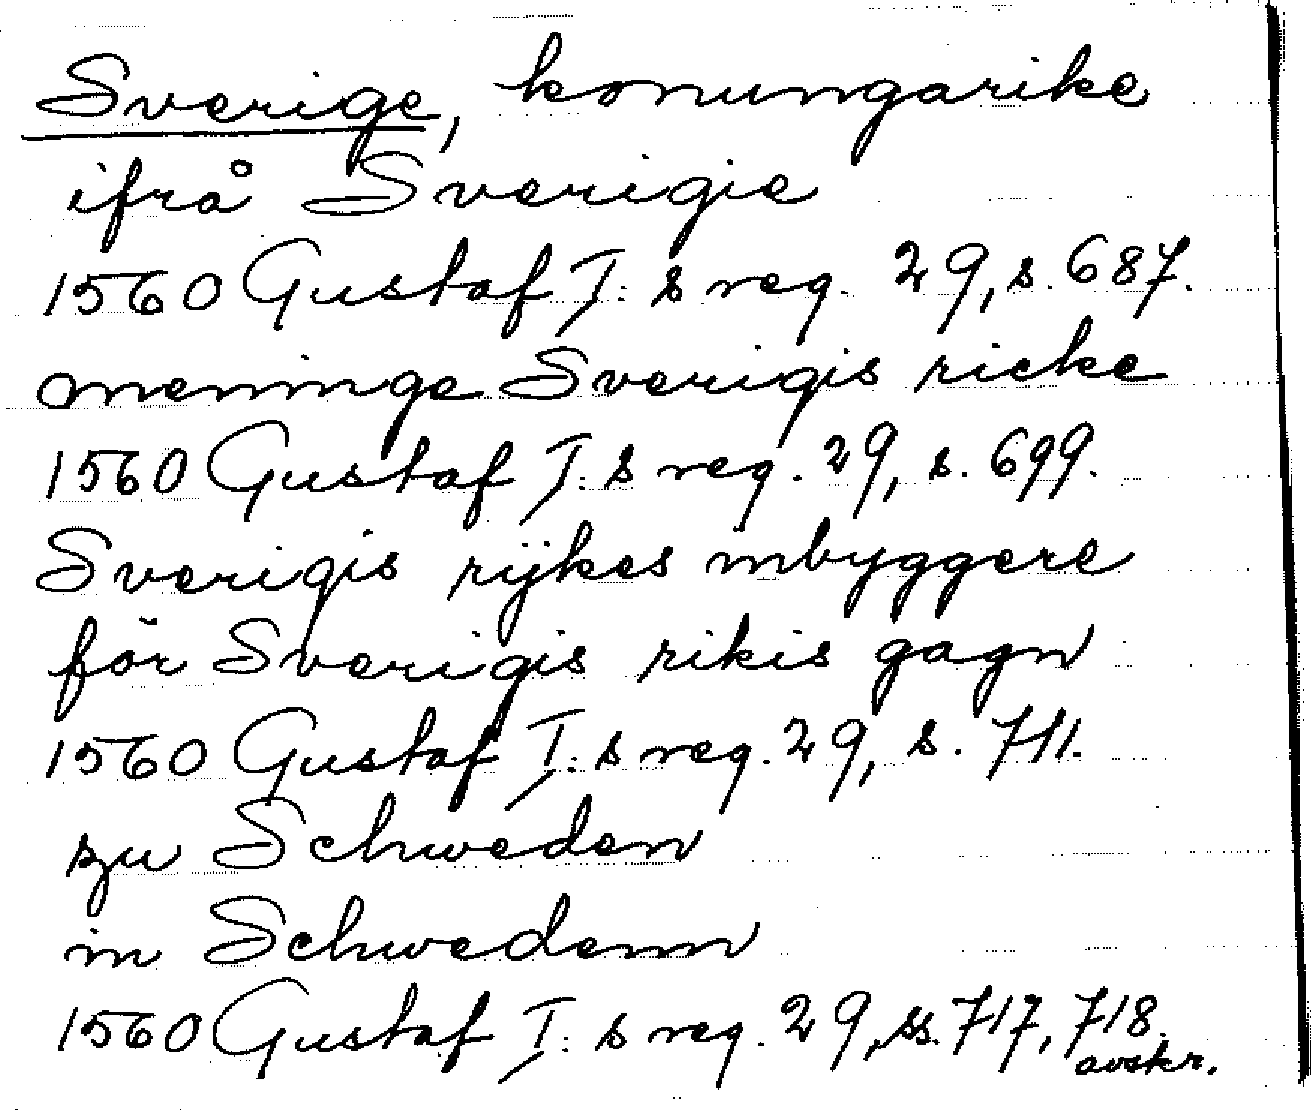 Sverige, konungarike
ifrå Sverigie
1560 Gustaf I: s reg. 29, s. 687.
meninge Sverigis ricke
1560 Gustaf I: s reg. 29, s. 699.
Sverigis rijkes inbyggere
för Sverigis rikis gagn
1560 Gustaf I: s reg. 29, s. 711.
zu Schweden
in Schwedenn
1560 Gustaf I: s reg. 29, ss. 717, 718.
avskr.